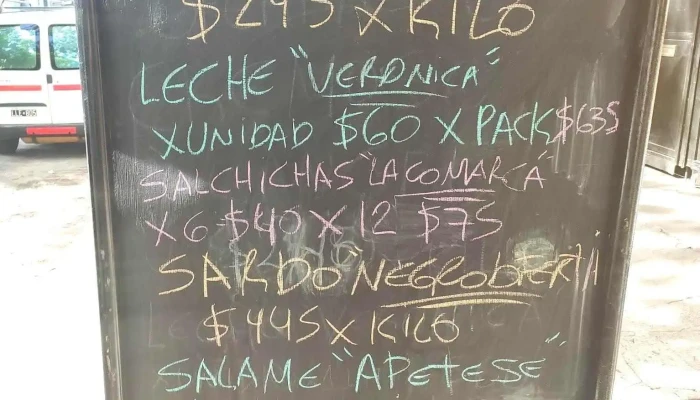 $245 X KILO
LECHE "VERONICA"
XUNIDAD $60 X PACK $635
SALCHICHAS "LA COMARCA"
X6 $40 X 12 $75
SARDO "NEGRO OFERTA
$445 X KILO
SALAME "APETESE"